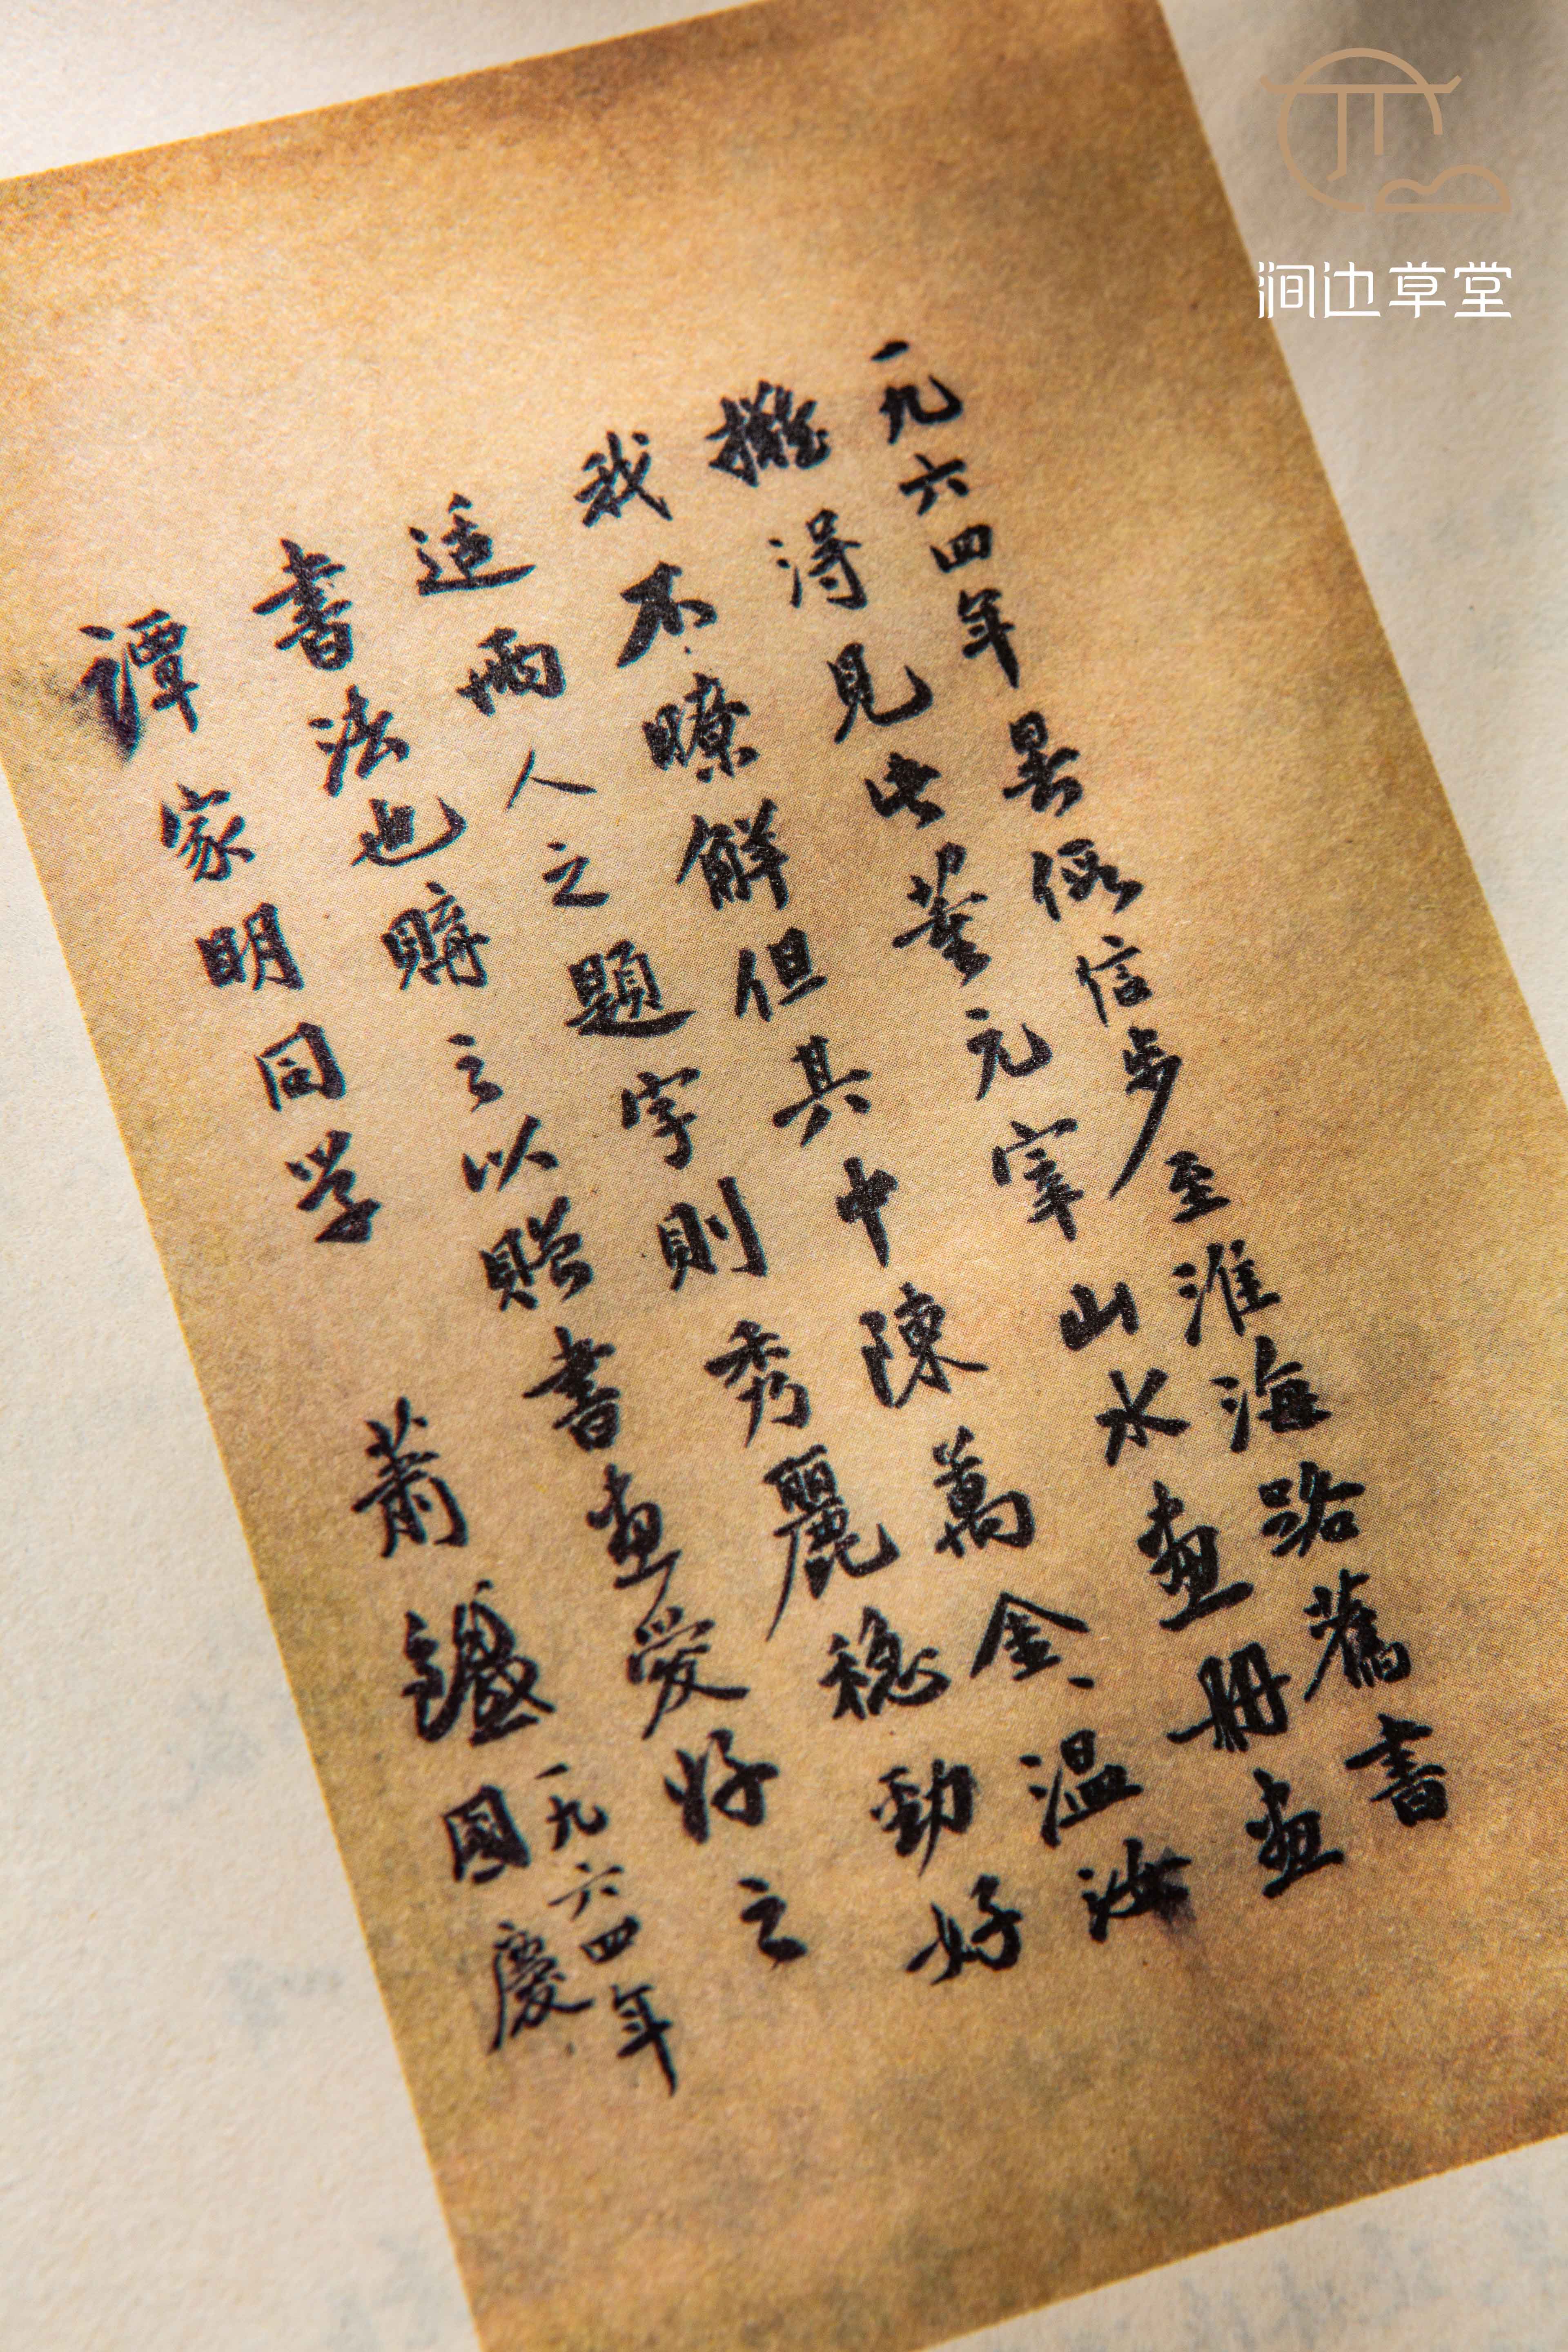 涧边草堂
一九六四年暑假信步至淮海路舊書
攤得見此董元宰山水画册画
我不暸解但其中陳萬金温汝
适兩人之題字則秀麗穏勁好
書法也購之以贈書画爱好之
譚家明同学
蕭鑑國慶
一九六四年